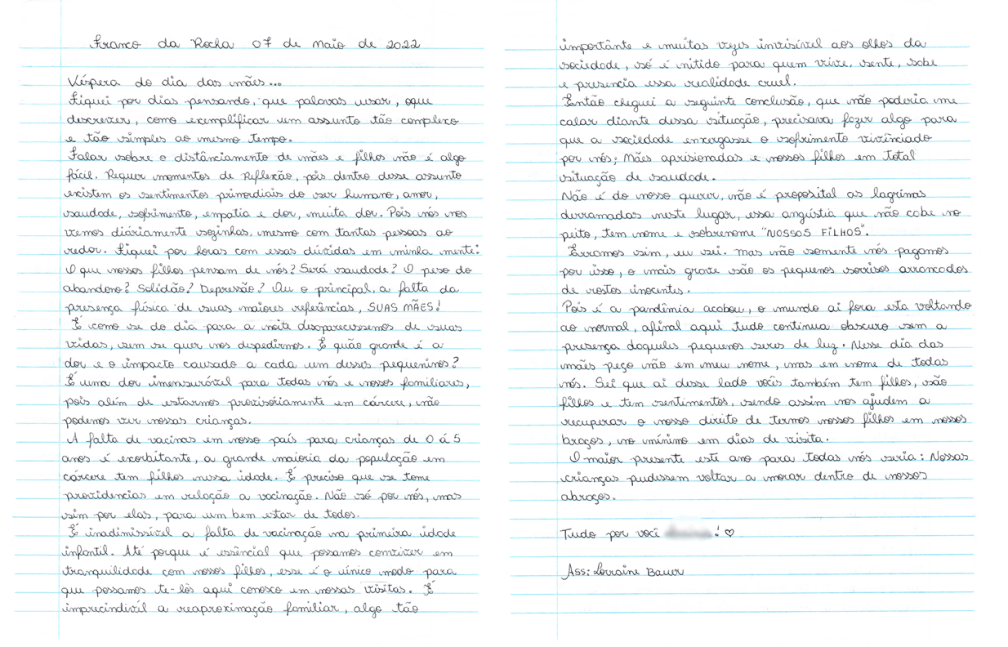 Franco da Rocha 07 de Maio de 2022
Véspera do dia das mães...
Fiquei por dias pensando, que palavras usar, oque
descrever, como exemplificar um assunto tão complexo
e tão simples ao mesmo tempo.
Falar sobre o distânciamento de mães e filhos não é algo
fácil. Requer momentos de Reflexão, pois dentro desse assunto
existem os sentimentos primordiais do ser humano, amor,
saudade, sofrimento, empatia e dor, muita dor. Pois nós nos
vemos diáriamente sozinhas, mesmo com tantas pessoas ao
redor. Fiquei por horas com essas dúvidas em minha mente:
O que nossos filhos pensam de nós? Será saudade? O peso do
abandono? Solidão? Depressão? Ou o principal, a falta da
presença física de suas maiores referências, SUAS MÃES!
É como se do dia para a noite desaparecessemos de suas
vidas, sem se quer nos despedirmos. E quão grande é a
dor e o impacto causado a cada um desses pequeninos?
É uma dor imensurável para todas nós e nossos familiares,
pois além de estarmos provisóriamente em cárcere, não
podemos ver nossas crianças.
A falta de vacinas em nosso país para crianças de 0 á 5
anos é exorbitante, a grande maioria da população em
cárcere tem filhos nessa idade. É preciso que se tome
providencias em relação a vacinação. Não só por nós, mas
sim por elas, para um bem estar de todos.
É inadimissível a falta de vacinação na primeira idade
infantil. Até porque é essêncial que possamos conviver em
tranquilidade com nossos filhos, esse é o único modo para
que possamos te-lós aqui conosco em nossas visitas. É
imprecindível a reaproximação familiar, algo tão
importânte e muitas vezes invisível aos olhos da
sociedade, só é nítido para quem vive, sente, sabe
e presencia essa realidade cruel.
Então cheguei a seguinte conclusão, que não poderia me
calar diante dessa situação, precisava fazer algo para
que a sociedade enxergasse o sofrimento vivênciado
por nós; Mães aprisionadas e nossos filhos em total
situação de saudade.
Não é do nosso querer, não é proposital as lagrimas
derramadas neste lugar, essa angústia que não cabe no
peito, tem nome e sobrenome "NOSSOS FILHOS".
Erramos sim, eu sei. Mas não somente nós pagamos
por isso, o mais grave são os pequenos sorrisos arrancados
de rostos inocentes.
Pois é a pandimia acabou, o mundo ai fora esta voltando
ao normal, afinal aqui tudo continua obscuro sem a
presença daqueles pequenos seres de luz. Nesse dia das
mães peço não em meu nome, mas em nome de todas
nós. Sei que ai desse lado vocês também tem filhos, são
filhos e tem sentimentos, sendo assim nos ajudem a
recuperar o nosso direito de termos nossos filhos em nossos
braços, no mínimo em dias de visita.
O maior presente este ano para todas nós seria: Nossas
crianças pudessem voltar a morar dentro de nossos
abraços.
Tudo por você ! ♡
Ass: Lorraine Bauer